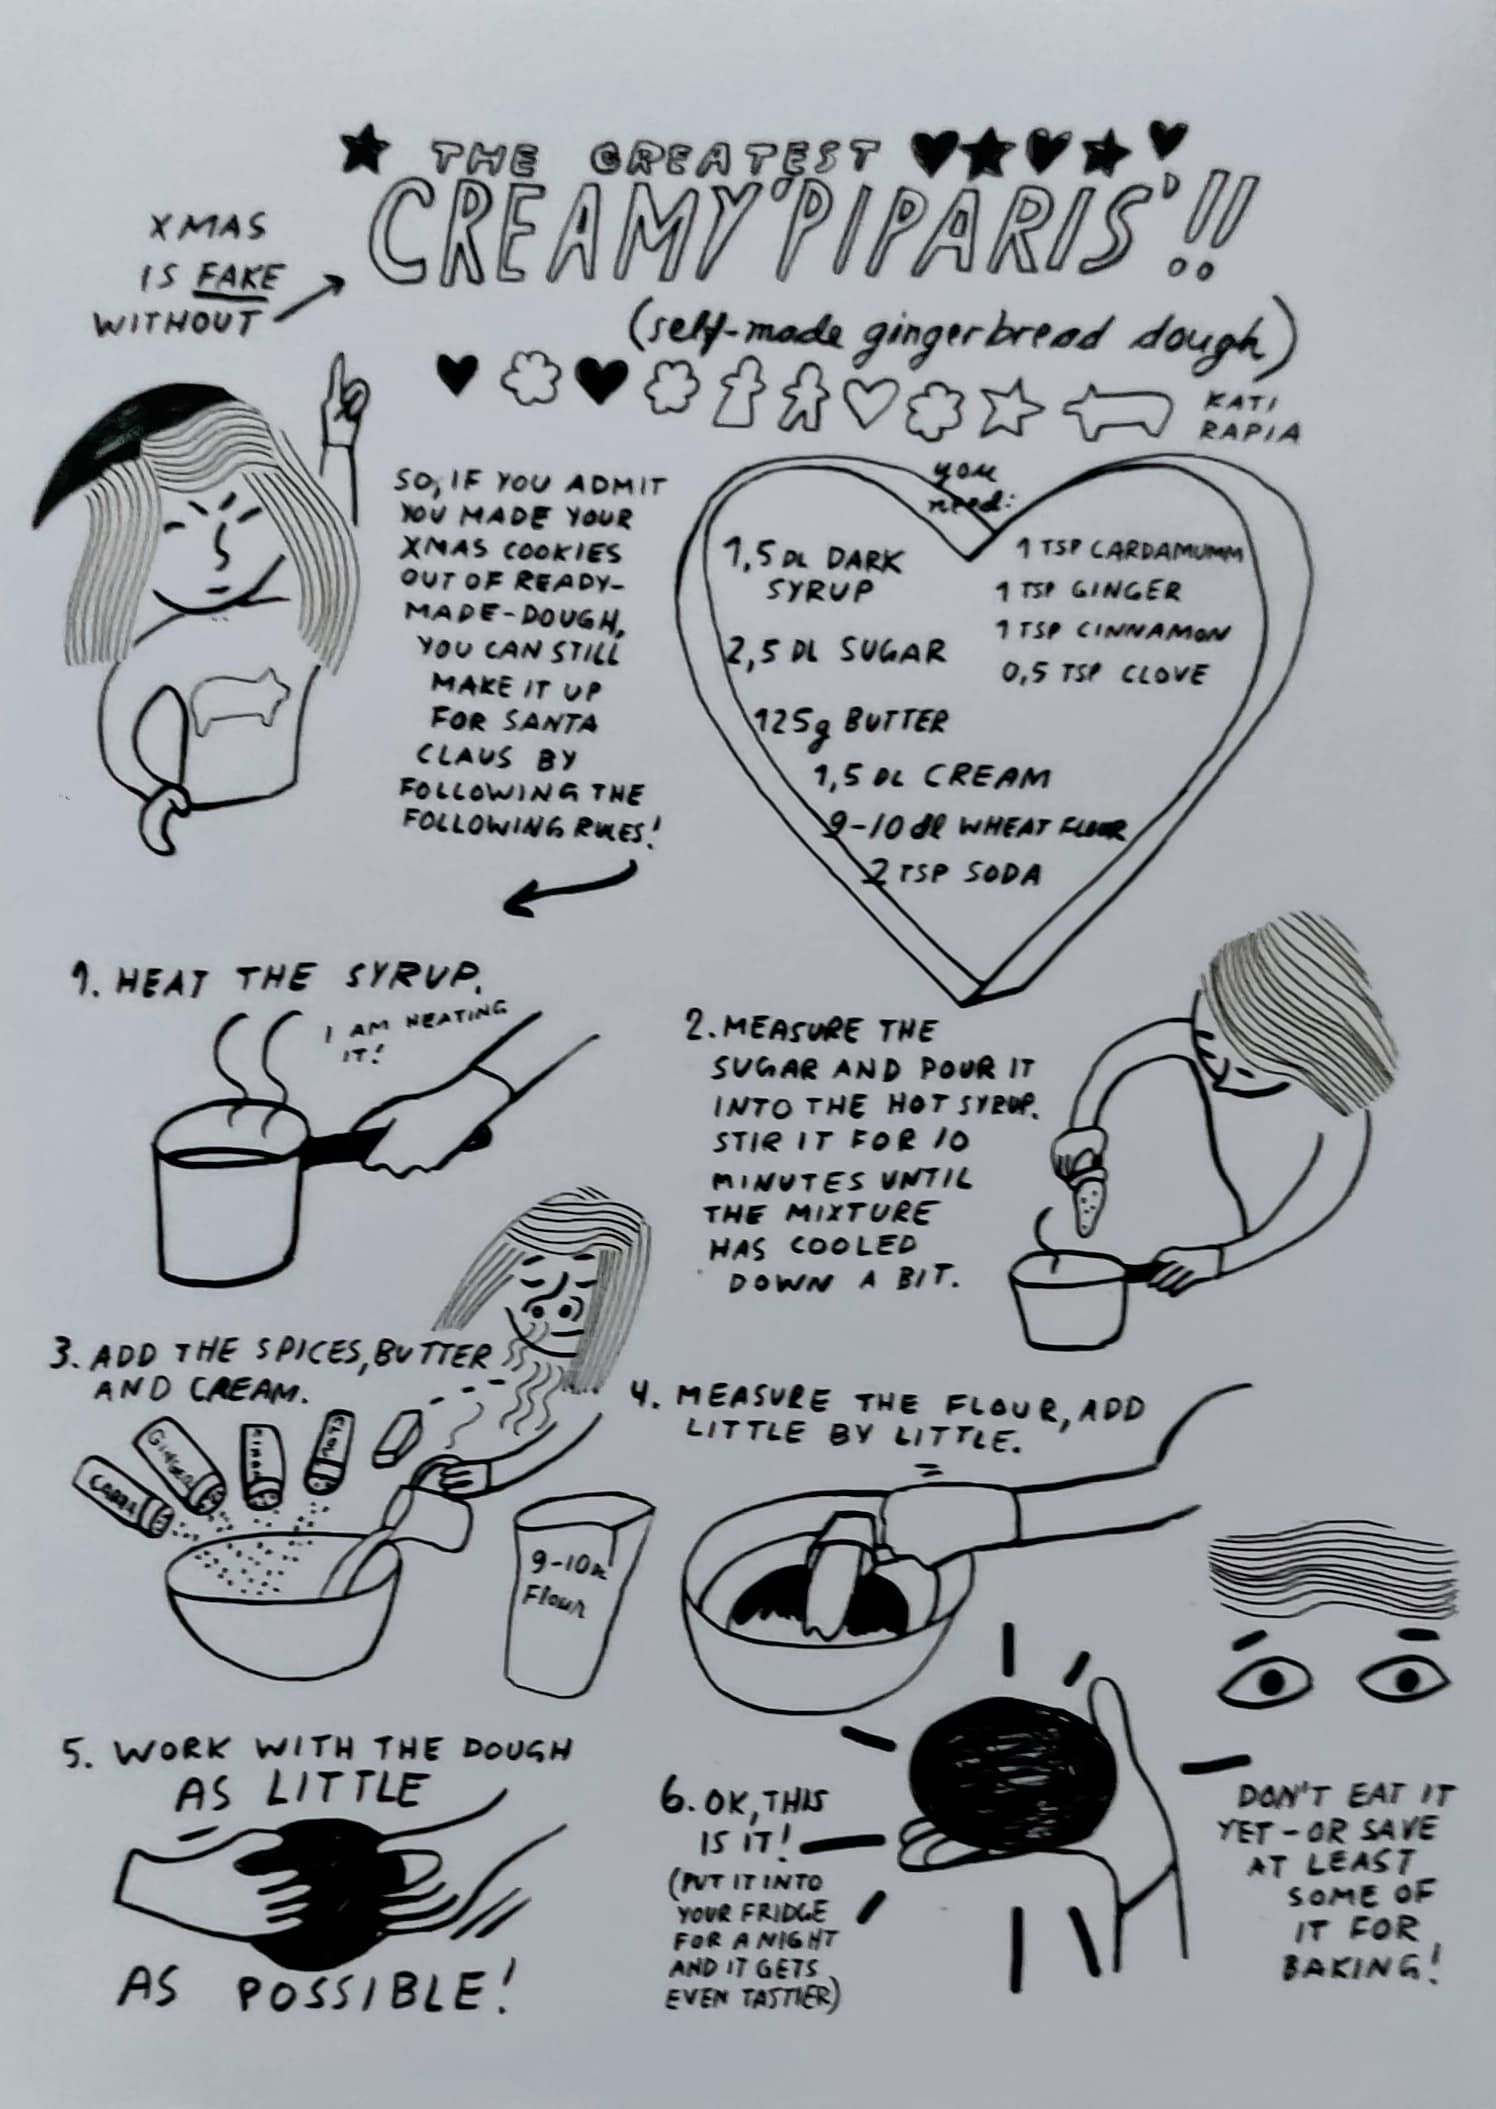 THE GREATEST
CREAMY 'PIPARIS'!!
(self-made gingerbread dough)
XMAS
IS FAKE
WITHOUT
KATI
RAPIA
SO, IF YOU ADMIT
YOU MADE YOUR
XMAS COOKIES
OUT OF READY-
MADE-DOUGH,
YOU CAN STILL
MAKE IT UP
FOR SANTA
CLAUS BY
FOLLOWING THE
FOLLOWING RULES!
you
need:
1,5 DL DARK
SYRUP
2,5 DL SUGAR
125g BUTTER
1,5 DL CREAM
9-10 dl WHEAT FLOUR
2 TSP SODA
1 TSP CARDAMUMM
1 TSP GINGER
1 TSP CINNAMON
0,5 TSP CLOVE
1. HEAT THE SYRUP.
I AM HEATING
IT!
2. MEASURE THE
SUGAR AND POUR IT
INTO THE HOT SYRUP.
STIR IT FOR 10
MINUTES UNTIL
THE MIXTURE
HAS COOLED
DOWN A BIT.
3. ADD THE SPICES, BUTTER
AND CREAM.
CARDA
GINGER
CINNA
CLOVE
9-10 DL
Flour
4. MEASURE THE FLOUR, ADD
LITTLE BY LITTLE.
5. WORK WITH THE DOUGH
AS LITTLE
AS POSSIBLE!
6. OK, THIS
IS IT!
(PUT IT INTO
YOUR FRIDGE
FOR A NIGHT
AND IT GETS
EVEN TASTIER)
DON'T EAT IT
YET - OR SAVE
AT LEAST
SOME OF
IT FOR
BAKING!